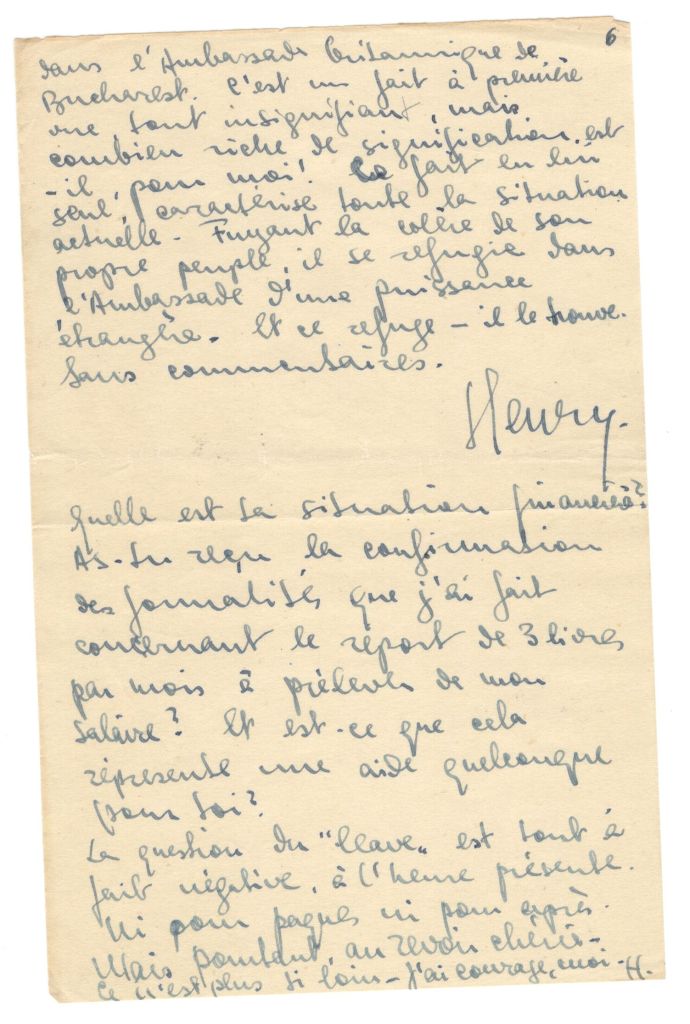 6
dans l'Ambassade britannique de
Bucharest. C'est un fait à première
vue, tout insignifiant, mais
combien riche de signification, est
-il, pour moi! Ce fait en lui
seul, caractérise toute la situation
actuelle - Fuyant la colère de son
propre peuple, il se refugie dans
l'Ambassade d'une puissance
étrangère. Et ce refuge - il le trouve.
Sans commentaires.
Henry.
Quelle est ta situation financière?
As-tu reçu la confirmation
des formalités que j'ai fait
concernant le réport de 3 livres
par mois à prélever de mon
salaire? Et est-ce que cela
répresente une aide quelconque
pour toi?
La question du "leave" est tout à
fait négative, à l'heure présente.
Ni pour paques ni pour après.
Mais pourtant, au revoir chérie -
Ce n'est plus si loin - J'ai courage, moi - H.